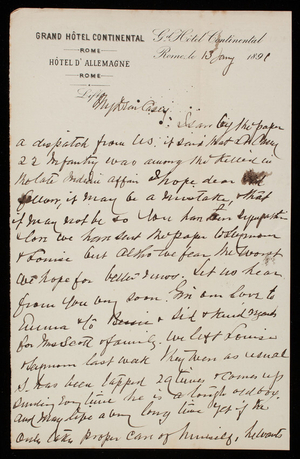 GRAND HÔTEL CONTINENTAL
ROME
HÔTEL D'ALLEMAGNE
ROME
G. Hôtel Continental
Rome, le 13 Jany 1891
My Dear Casey
I saw by the paper
a dispatch from U.S. it said that
22 Infantry was among the killed in
the late Indian affair I hope dear
fellow, it may be a mistake, & that
it may not be so You have our sympathies
We have sent the paper to
& Louise but although we fear the worst
we hope for better news. Let us hear
from you very soon. love to
Emma & to Bessie & Sid & kind regards
for Mrs Scott & family. We left Louise
& last week They were as usual
S. has been tapped 29 times & comes up
smiling every time he is a tough old boy
and may live a long time yet if he
only takes proper care of himself, he wants